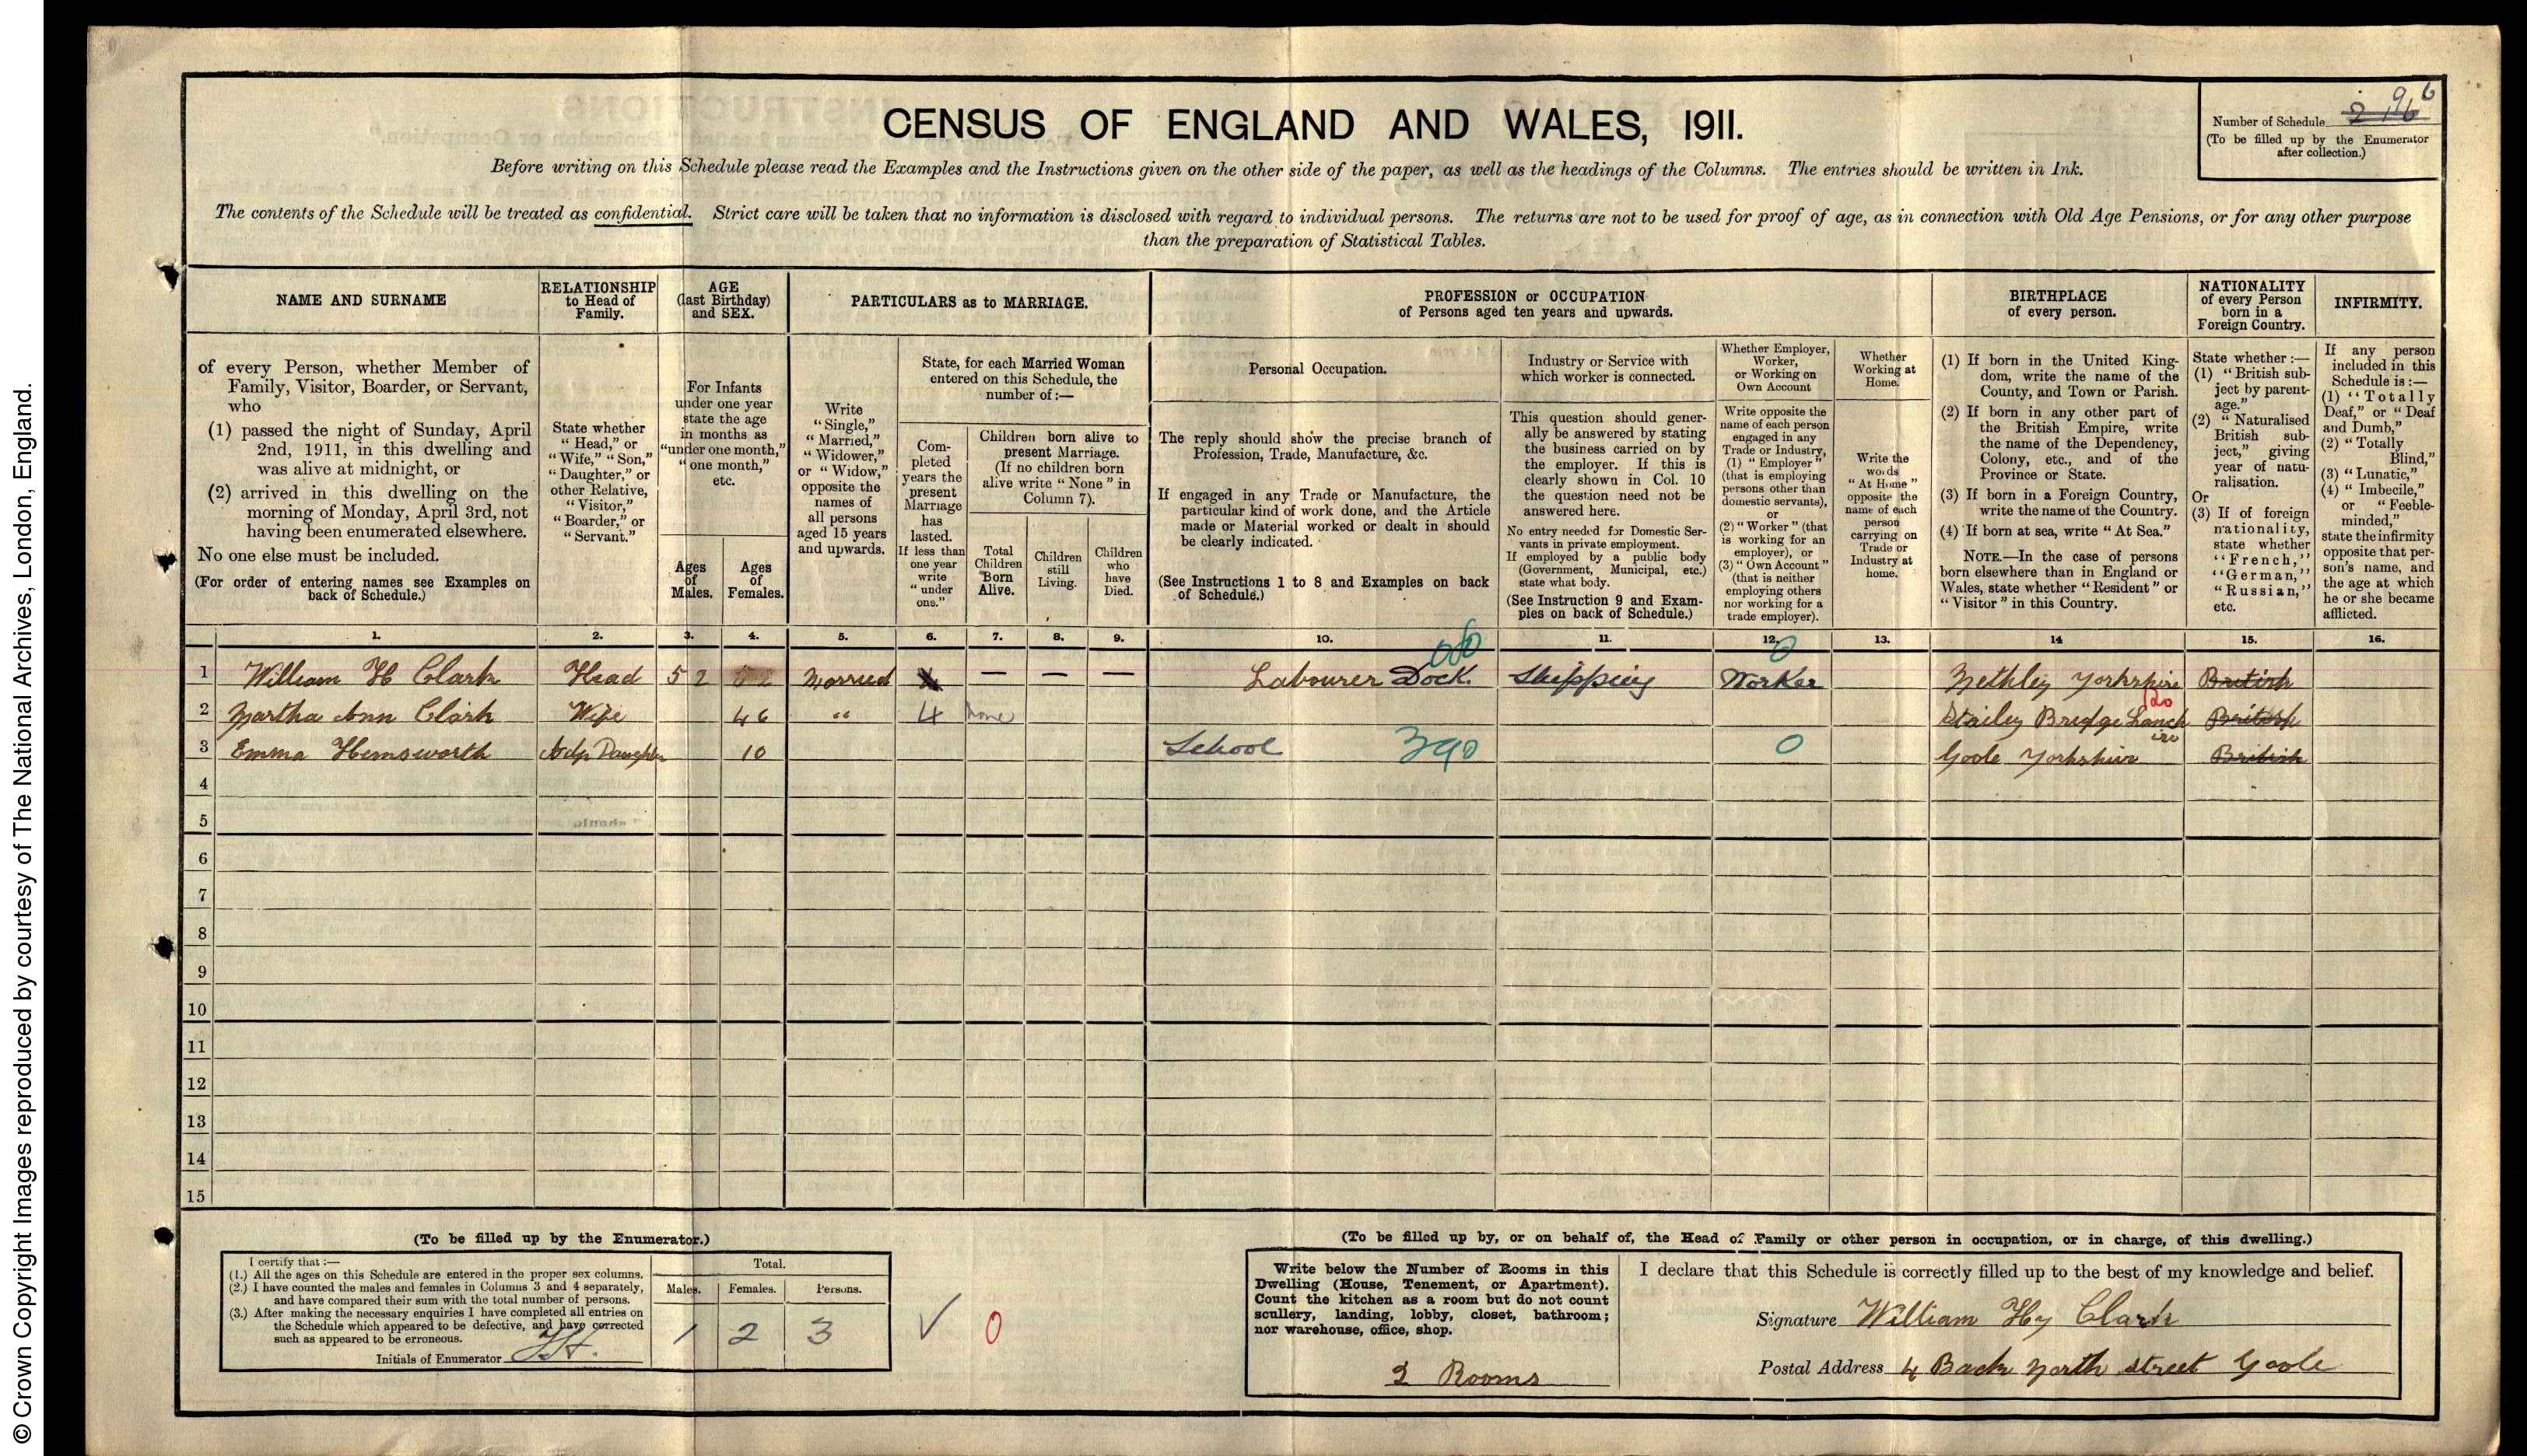 CENSUS OF ENGLAND AND WALES, 1911.
Number of Schedule 296
(To be filled up by the Enumerator
after collection.)
Before writing on this Schedule please read the Examples and the Instructions given on the other side of the paper, as well as the headings of the Columns. The entries should be written in Ink.
The contents of the Schedule will be treated as confidential. Strict care will be taken that no information is disclosed with regard to individual persons. The returns are not to be used for proof of age, as in connection with Old Age Pensions, or for any other purpose
than the preparation of Statistical Tables.
NAME AND SURNAME
of every Person, whether Member of
Family, Visitor, Boarder, or Servant,
who
(1) passed the night of Sunday, April
2nd, 1911, in this dwelling and
was alive at midnight, or
(2) arrived in this dwelling on the
morning of Monday, April 3rd, not
having been enumerated elsewhere.
No one else must be included.
(For order of entering names see Examples on
back of Schedule.)
RELATIONSHIP
to Head of
Family.
State whether
"Head," or
"Wife," "Son,"
"Daughter," or
other Relative,
"Visitor,"
"Boarder," or
"Servant."
AGE
(last Birthday)
and SEX.
For Infants
under one year
state the age
in months as
"under one month,"
"one month,"
etc.
Ages
of
Males.
Ages
of
Females.
PARTICULARS as to MARRIAGE.
Write
"Single,"
"Married,"
"Widower,"
or "Widow,"
opposite the
names of
all persons
aged 15 years
and upwards.
State, for each Married Woman
entered on this Schedule, the
number of:—
Com-
pleted
years the
present
Marriage
has
lasted.
If less than
one year
write
"under
one."
Children born alive to
present Marriage.
(If no children born
alive write "None" in
Column 7).
Total
Children
Born
Alive.
Children
still
Living.
Children
who
have
Died.
PROFESSION or OCCUPATION
of Persons aged ten years and upwards.
Personal Occupation.
The reply should show the precise branch of
Profession, Trade, Manufacture, &c.
If engaged in any Trade or Manufacture, the
particular kind of work done, and the Article
made or Material worked or dealt in should
be clearly indicated.
(See Instructions 1 to 8 and Examples on back
of Schedule.)
Industry or Service with
which worker is connected.
This question should gener-
ally be answered by stating
the business carried on by
the employer. If this is
clearly shown in Col. 10
the question need not be
answered here.
No entry needed for Domestic Ser-
vants in private employment.
If employed by a public body
(Government, Municipal, etc.)
state what body.
(See Instruction 9 and Exam-
ples on back of Schedule.)
Whether Employer,
Worker,
or Working on
Own Account
Write opposite the
name of each person
engaged in any
Trade or Industry,
(1) "Employer"
(that is employing
persons other than
domestic servants),
or
(2) "Worker" (that
is working for an
employer), or
(3) "Own Account"
(that is neither
employing others
nor working for a
trade employer).
Whether
Working at
Home.
Write the
words
"At Home"
opposite the
name of each
person
carrying on
Trade or
Industry at
home.
BIRTHPLACE
of every person.
(1) If born in the United King-
dom, write the name of the
County, and Town or Parish.
(2) If born in any other part of
the British Empire, write
the name of the Dependency,
Colony, etc., and of the
Province or State.
(3) If born in a Foreign Country,
write the name of the Country.
(4) If born at sea, write "At Sea."
NOTE.—In the case of persons
born elsewhere than in England or
Wales, state whether "Resident" or
"Visitor" in this Country.
NATIONALITY
of every Person
born in a
Foreign Country.
State whether:—
(1) "British sub-
ject by parent-
age."
(2) "Naturalised
British sub-
ject," giving
year of natu-
ralisation.
Or
(3) If of foreign
nationality,
state whether
"French,"
"German,"
"Russian,"
etc.
INFIRMITY.
If any person
included in this
Schedule is:—
(1) "Totally
Deaf," or "Deaf
and Dumb,"
(2) "Totally
Blind,"
(3) "Lunatic,"
(4) "Imbecile,"
or "Feeble-
minded,"
state the infirmity
opposite that per-
son's name, and
the age at which
he or she became
afflicted.
1. 2. 3. 4. 5. 6. 7. 8. 9. 10. 11. 12. 13. 14 15. 16.
1 William H Clark Head 52 Married — — — Labourer Dock Shipping Worker Methley Yorkshire British
2 Martha Ann Clark Wife 46 " 4 None Staley Bridge British
3 Emma Hemsworth Adp Daughter 10 School 390 0 Goole Yorkshire British
4
5
6
7
8
9
10
11
12
13
14
15
(To be filled up by the Enumerator.)
I certify that:—
(1.) All the ages on this Schedule are entered in the proper sex columns.
(2.) I have counted the males and females in Columns 3 and 4 separately,
and have compared their sum with the total number of persons.
(3.) After making the necessary enquiries I have completed all entries on
the Schedule which appeared to be defective, and have corrected
such as appeared to be erroneous.
Initials of Enumerator
Total.
Males. Females. Persons.
1 2 3
0
(To be filled up by, or on behalf of, the Head of Family or other person in occupation, or in charge, of this dwelling.)
Write below the Number of Rooms in this
Dwelling (House, Tenement, or Apartment).
Count the kitchen as a room but do not count
scullery, landing, lobby, closet, bathroom;
nor warehouse, office, shop.
Rooms
I declare that this Schedule is correctly filled up to the best of my knowledge and belief.
Signature William Hy Clark
Postal Address 4 Back North Street Goole
© Crown Copyright Images reproduced by courtesy of The National Archives, London, England.